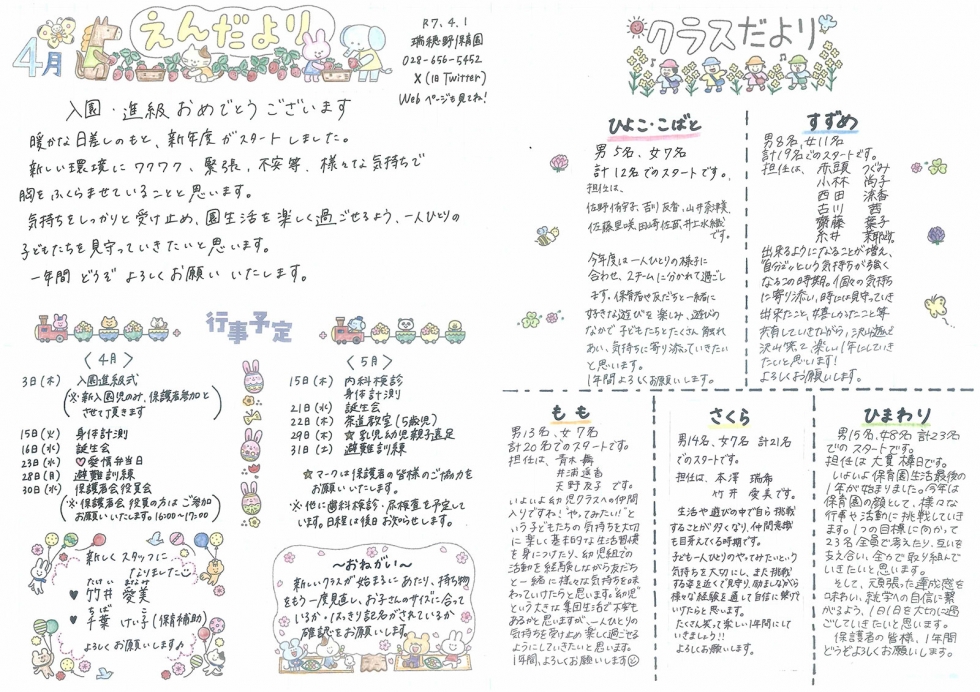 4月
えんだより
R7.4.1
瑞穂野保育園
028-656-5452
X(旧Twitter)
Webページも見てね!
入園・進級おめでとうございます
暖かな日差しのもと、新年度がスタートしました。
新しい環境にワクワク、緊張、不安等、様々な気持ちで
胸をふくらませていることと思います。
気持ちをしっかりと受け止め、園生活を楽しく過ごせるよう、一人ひとりの
子どもたちを見守っていきたいと思います。
一年間 どうぞ よろしくお願い いたします。
行事予定
〈4月〉
3日(木) 入園進級式
(※新入園児のみ、保護者参加と
させて頂きます)
15日(火) 身体計測
16日(水) 誕生会
23日(水) ♡愛情弁当日
28日(月) 避難訓練
30日(水) 保護者会役員会
(※保護者会役員の方はご参加
お願いいたします。16:00~17:00)
〈5月〉
15日(木) 内科検診
身体計測
21日(水) 誕生会
22日(木) 茶道教室(5歳児)
29日(木) ☆乳児幼児親子遠足
31日(土) 避難訓練
☆マークは保護者の皆様のご協力を
お願いいたします。
※他に歯科検診・尿検査を予定して
います。日程は後日お知らせします。
新しくスタッフに
なりました♪
♥竹井 愛美
たけい まなみ
♥千葉 けい子(保育補助)
ちば
よろしくお願いします♪
~おねがい~
新しいクラスが始まるにあたり、持ち物
をもう一度見直し、お子さんのサイズに合って
いるか・はっきり記名がされているか
確認をお願いします。
クラスだより
ひよこ・こばと
男5名、女7名
計12名でのスタートです。
担任は、
佐野、吉川友香、山井
佐藤里咲、田崎佐苗、井上水織
です。
今年度は一人ひとりの様子に
合わせ、2チームに分かれて過ごし
ます。保育者や友だちと一緒に
好きな遊びを楽しみ、遊びの
なかで子どもたちとたくさん触れ
あい、気持ちに寄り添っていきたい
と思います。
1年間よろしくお願いします。
すずめ
男8名、女11名
計19名でのスタートです。
担任は、赤頭 つぐみ
小林 尚子
西田 涼香
古川 茜
齋藤 葉子
糸井 です。
出来るようになることが増え、
"自分で"という気持ちが強く
なるこの時期。個々の気持ち
に寄り添い、時には見守っていき
出来たこと、嬉しかったこと等
共有していきながら、沢山遊び
沢山笑って楽しい1年にしていき
たいと思います!
よろしくお願いします。
もも
男13名、女7名
計20名でのスタートです。
担任は、青木舞
井浦遥香
天野友子 です。
いよいよ幼児クラスへの仲間
入りですね!"やってみたい"と
いう子どもたちの気持ちを大切
に楽しく基本的な生活習慣
を身につけたり、幼児組での
活動を経験しながら友だち
と一緒に様々な気持ちを味
わっていけたらと思います。幼児
という大きな集団生活で不安も
あるかと思いますが、一人ひとりの
気持ちを受け止め楽しく過ごせる
ようにしていきたいと思います。
1年間、よろしくお願いします☺
さくら
男14名、女7名 計21名
でのスタートです。
担任は、本澤 瑞希
竹井 愛美です。
生活や遊びの中で自ら挑戦
することが多くなり、仲間意識
も目芽えてくる時期です。
子ども一人ひとりのやってみたいとい
う気持ちを大切にし、また挑戦
する姿を近くで見守り励ましながら
様々な経験を通して自信に繋げて
いけたらと思います。
たくさん笑って楽しい1年間にして
いきましょう!!
よろしくお願いします。
ひまわり
男15名、女8名 計23名
でのスタートです。
担任は大貫椿です。
いよいよ保育園生活最後の
1年が始まりました。今年は
保育園の顔として、様々な
行事や活動に挑戦していき
ます。1つの目標に向かって
23名全員で考えたり、互いを
支え合い、全力で取り組んで
いきたいと思います。
そして、頑張った達成感を
味わい、就学への自信に繋
がるよう、1日1日を大切に過
ごしていきたいと思います。
保護者の皆様、1年間
どうぞよろしくお願いします。